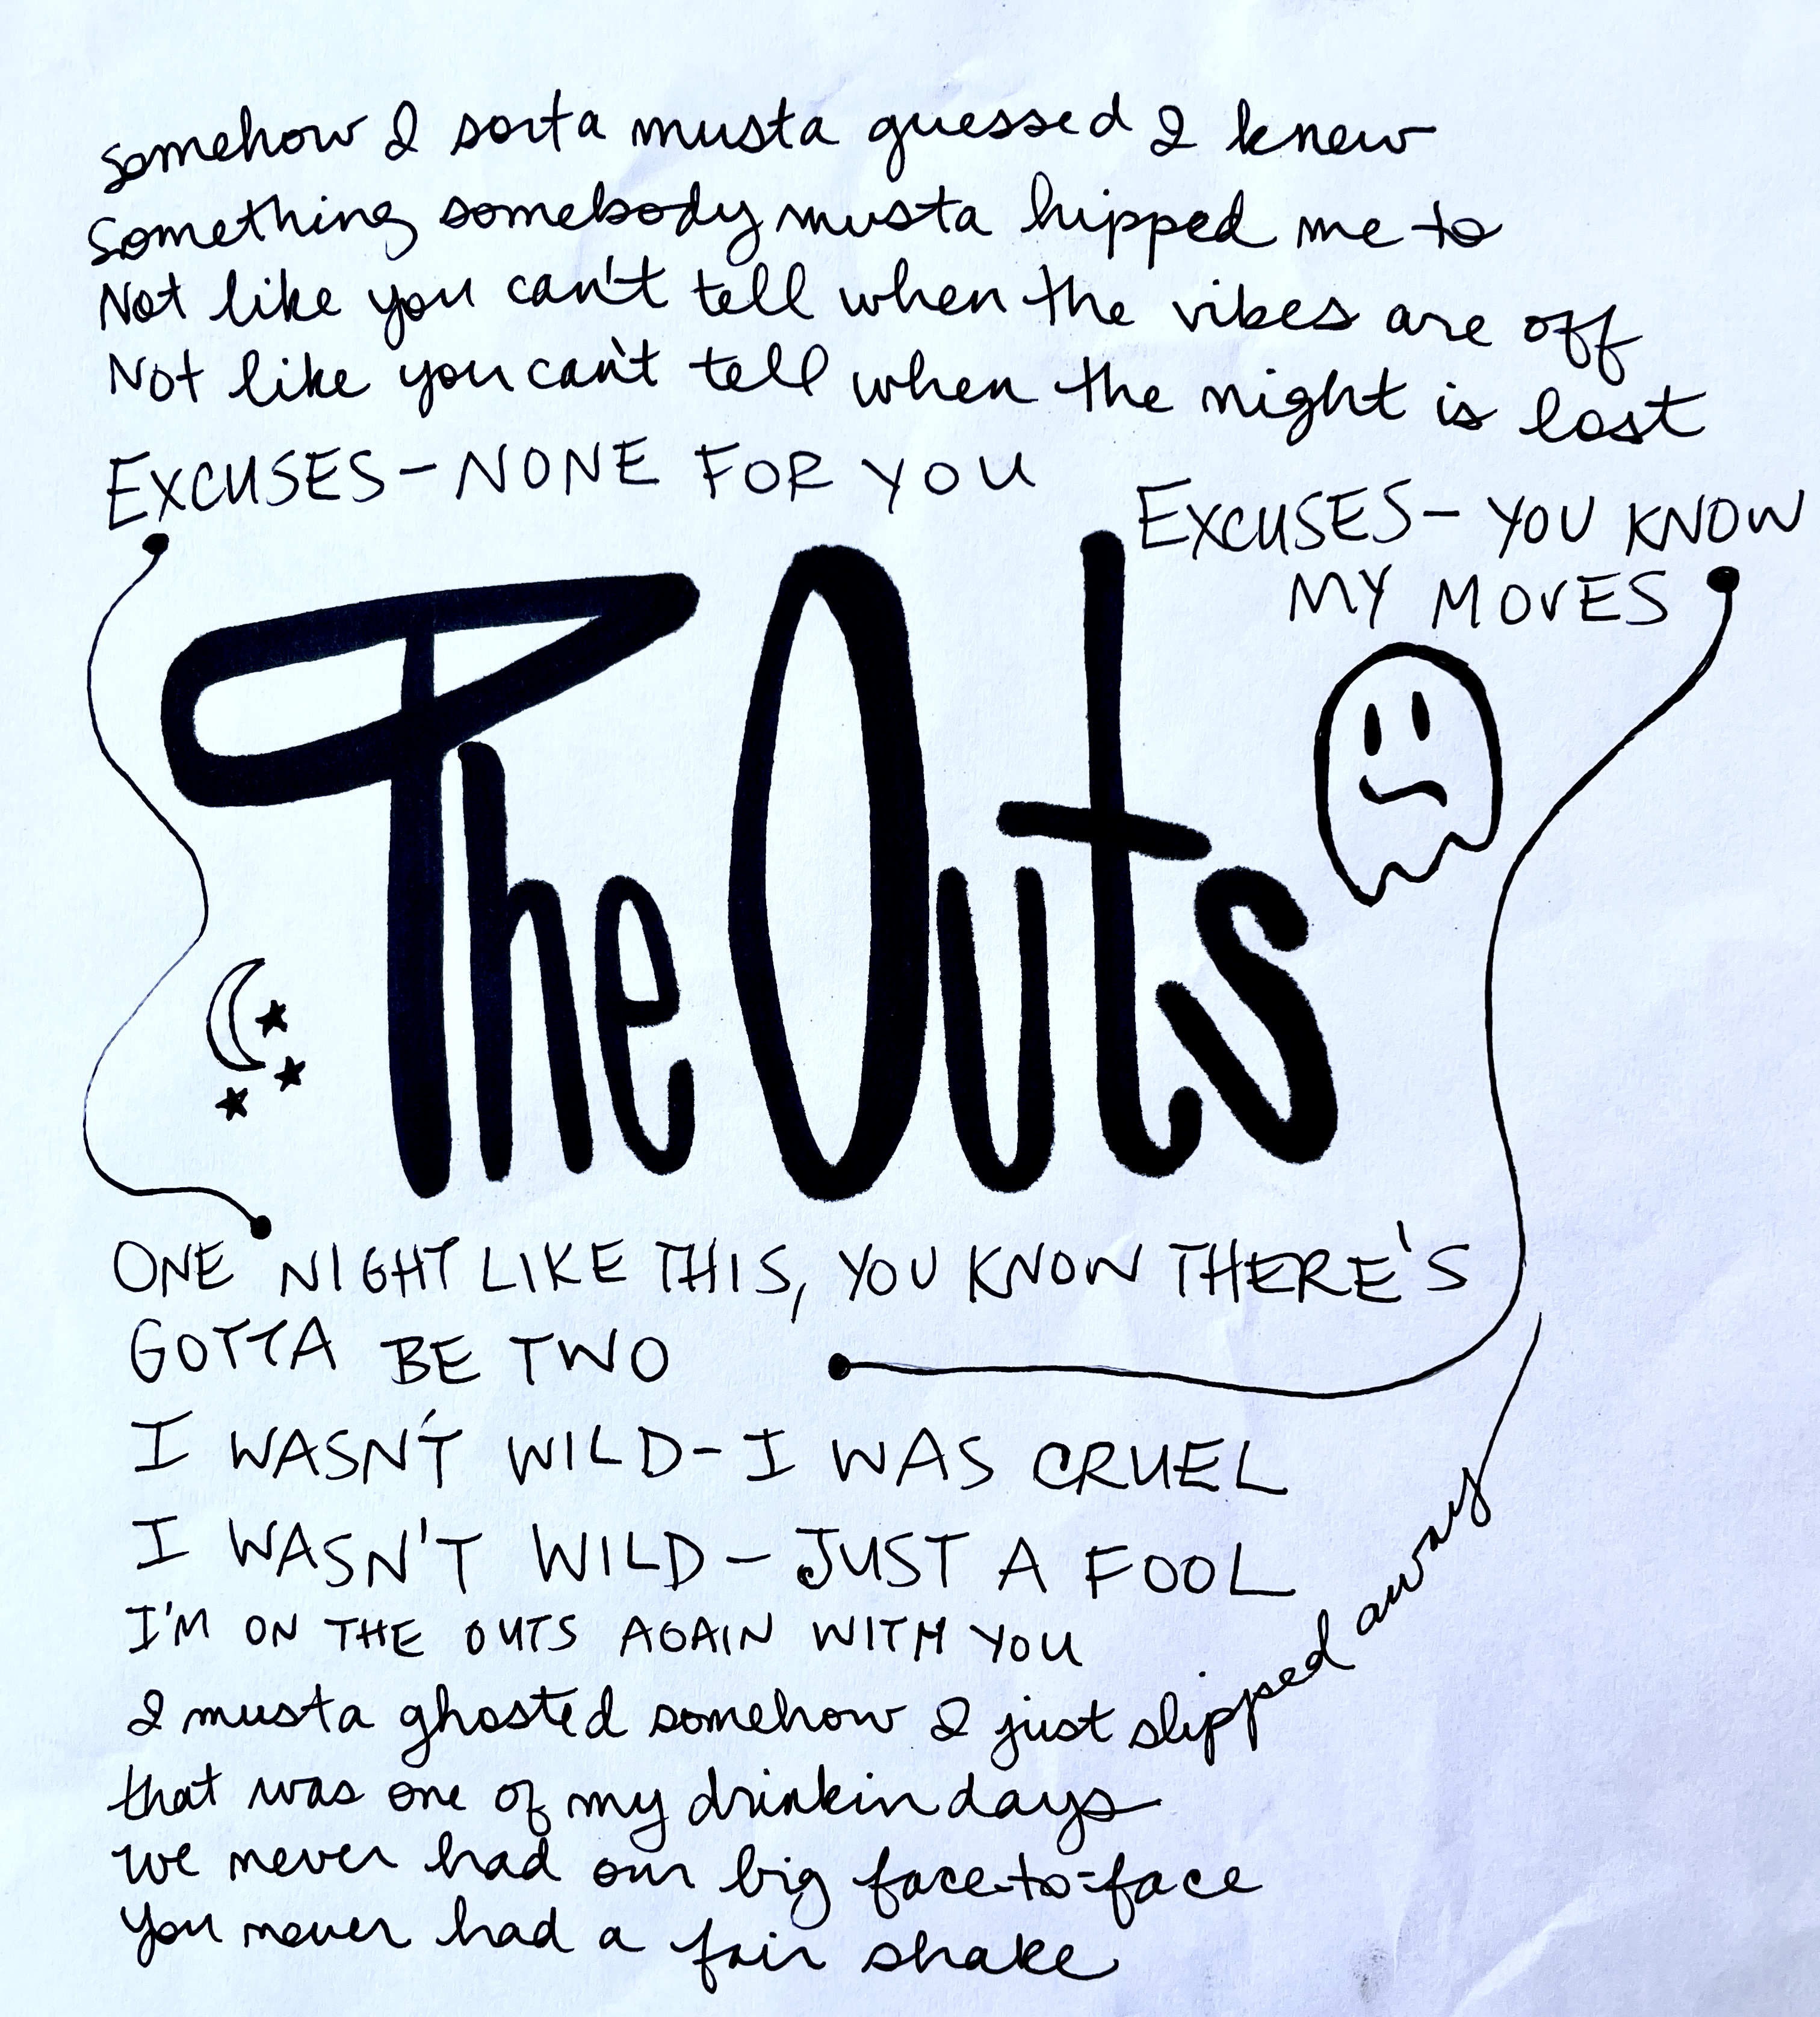 somehow I sorta musta guessed I knew
something somebody musta hipped me to
Not like you can't tell when the vibes are off
Not like you can't tell when the night is lost
EXCUSES – NONE FOR YOU
EXCUSES – YOU KNOW
MY MOVES
The Outs
ONE NIGHT LIKE THIS, YOU KNOW THERE'S
GOTTA BE TWO
I WASN'T WILD – I WAS CRUEL
I WASN'T WILD – JUST A FOOL
I'M ON THE OUTS AGAIN WITH YOU
I musta ghosted somehow I just slipped away
that was one of my drinkin days
we never had our big face-to-face
You never had a fair shake